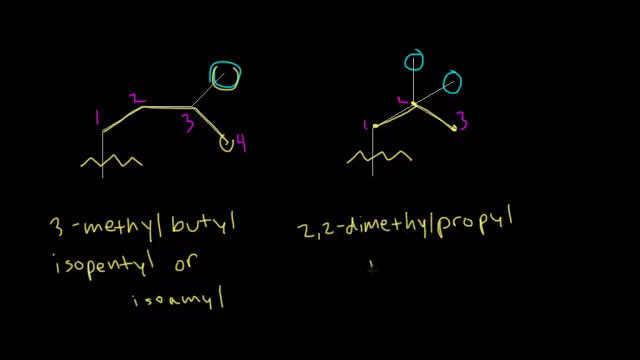 1 2 3 4
1 2 3
3-methylbutyl
isopentyl or
isoamyl
2,2-dimethylpropyl